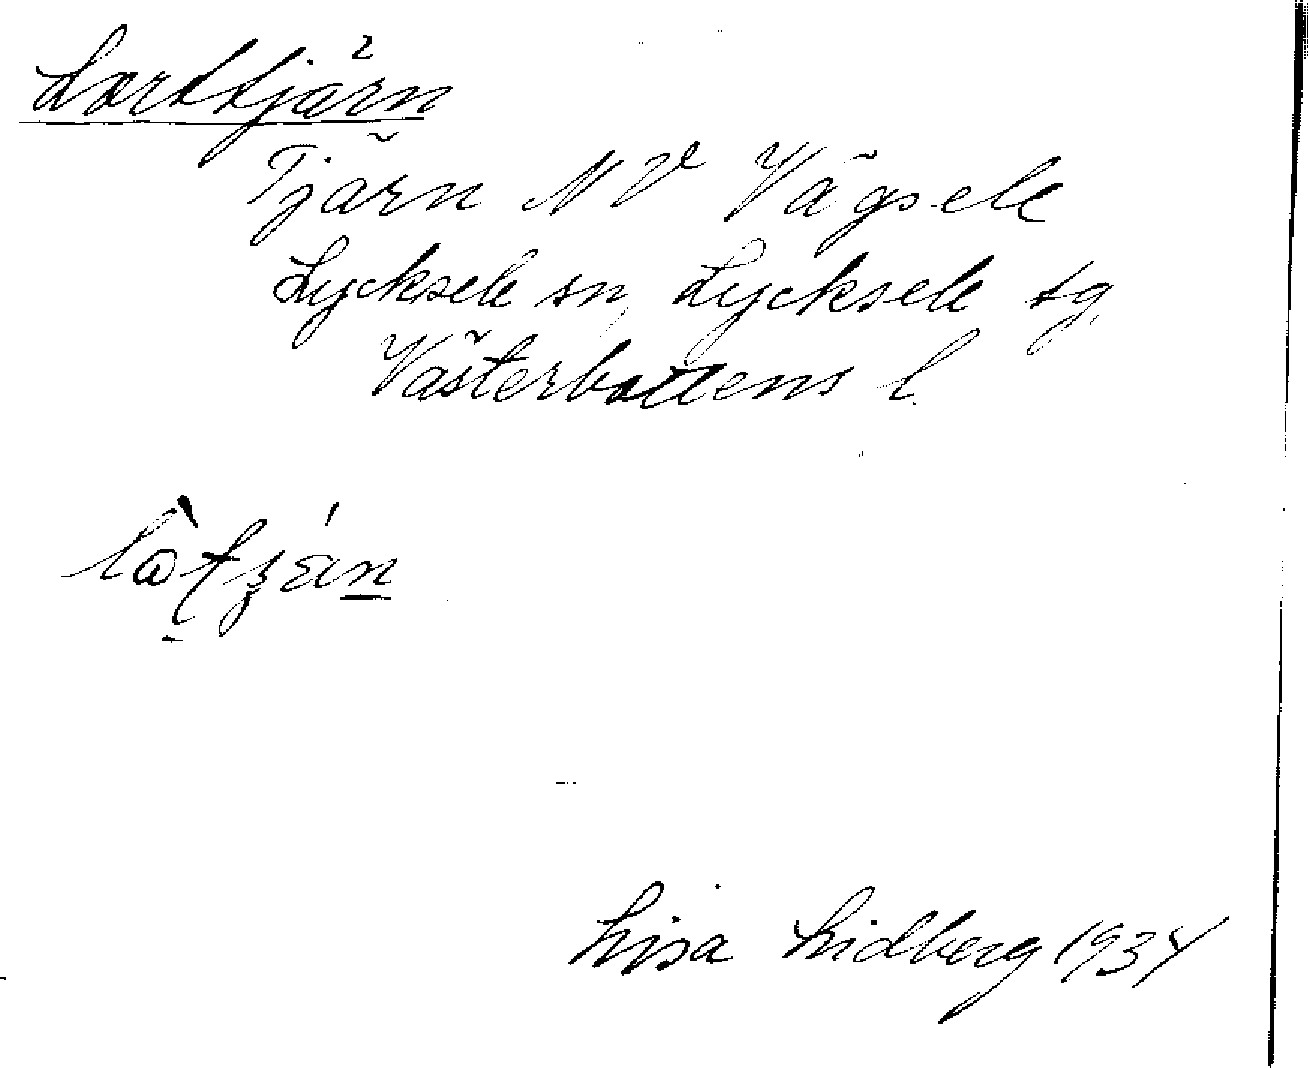 Lorttjärn
Tjärn NV Vägsele
Lycksele sn, Lycksele tg,
Västerbottens l.
Lisa Lidberg 1934